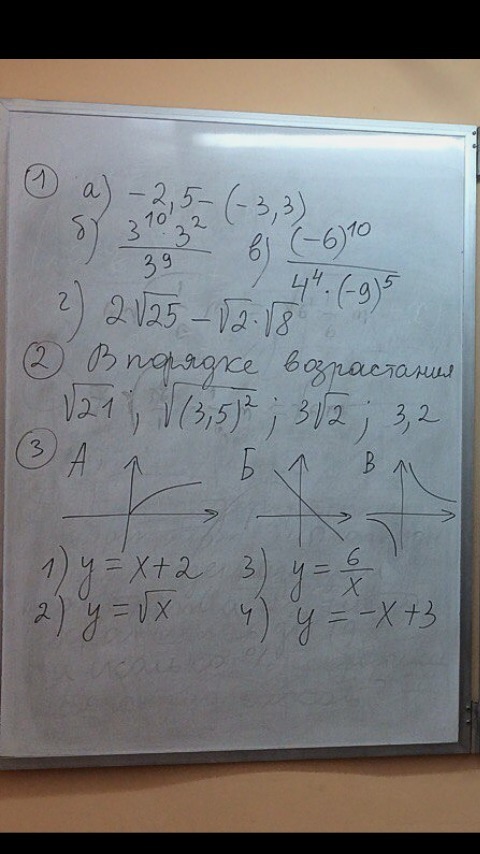 1 а) -2,5-(-3,3)
б) 3^10 · 3^2 / 3^9 в) (-6)^10 / 4^4 · (-9)^5
г) 2√25 - √2 · √8
2 В порядке возрастания
√21 ; √(3,5)^2 ; 3√2 ; 3,2
3 А Б В
1) y = x+2 3) y = 6/x
2) y = √x 4) y = -x+3